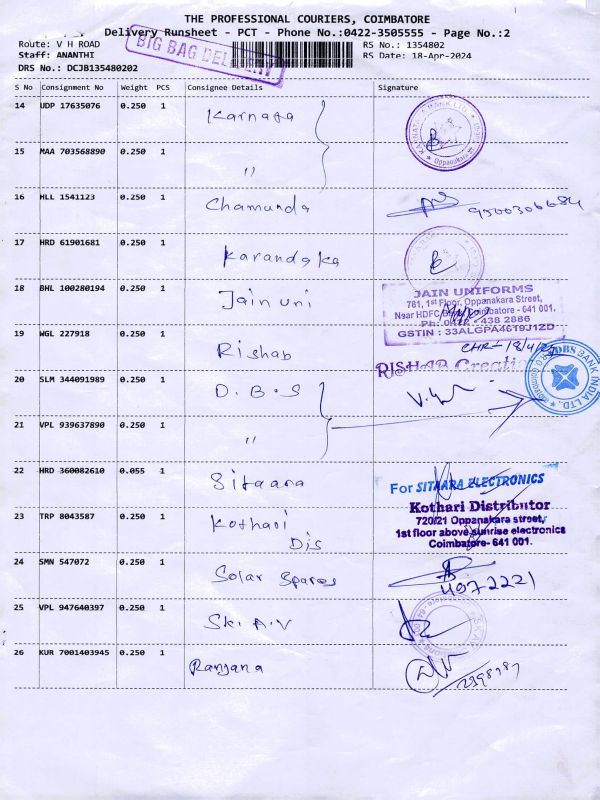 THE PROFESSIONAL COURIERS, COIMBATORE
Delivery Runsheet - PCT - Phone No.:0422-3505555 - Page No.:2
Route: V H ROAD
BIG BAG DELIVERY
RS No.: 1354802
Staff: ANANTHI
RS Date: 18-Apr-2024
DRS No.: DCJB135480202
S No Consignment No Weight PCS Consignee Details Signature
14 UDP 17635076 0.250 1 Karnata
KARNATAKA BANK LTD. Oppanakara
15 MAA 703568890 0.250 1 "
16 HLL 1541123 0.250 1 Chamunda
17 HRD 61901681 0.250 1 Karandaka
18 BHL 100280194 0.250 1 Jain uni
JAIN UNIFORMS
781, 1st Floor, Oppanakara Street,
Near HDFC Bank, Coimbatore - 641 001.
Ph: 0422 - 438 2886
GSTIN : 33ALGPA4619J1ZD
19 WGL 227918 0.250 1 Rishab
RISHAB Creation
DBS BANK INDIA LTD.,
20 SLM 344091989 0.250 1 D.B.S
21 VPL 939637890 0.250 1 "
22 HRD 360082610 0.055 1 Sitaara
For SITAARA ELECTRONICS
23 TRP 8043587 0.250 1 Kothari
Dis
Kothari Distributor
720/21 Oppanakara street,
1st floor above sunrise electronics
Coimbatore- 641 001.
24 SMN 547072 0.250 1 Solar Spares
4972221
25 VPL 947640397 0.250 1 Ski A.V
26 KUR 7001403945 0.250 1 Ranjana